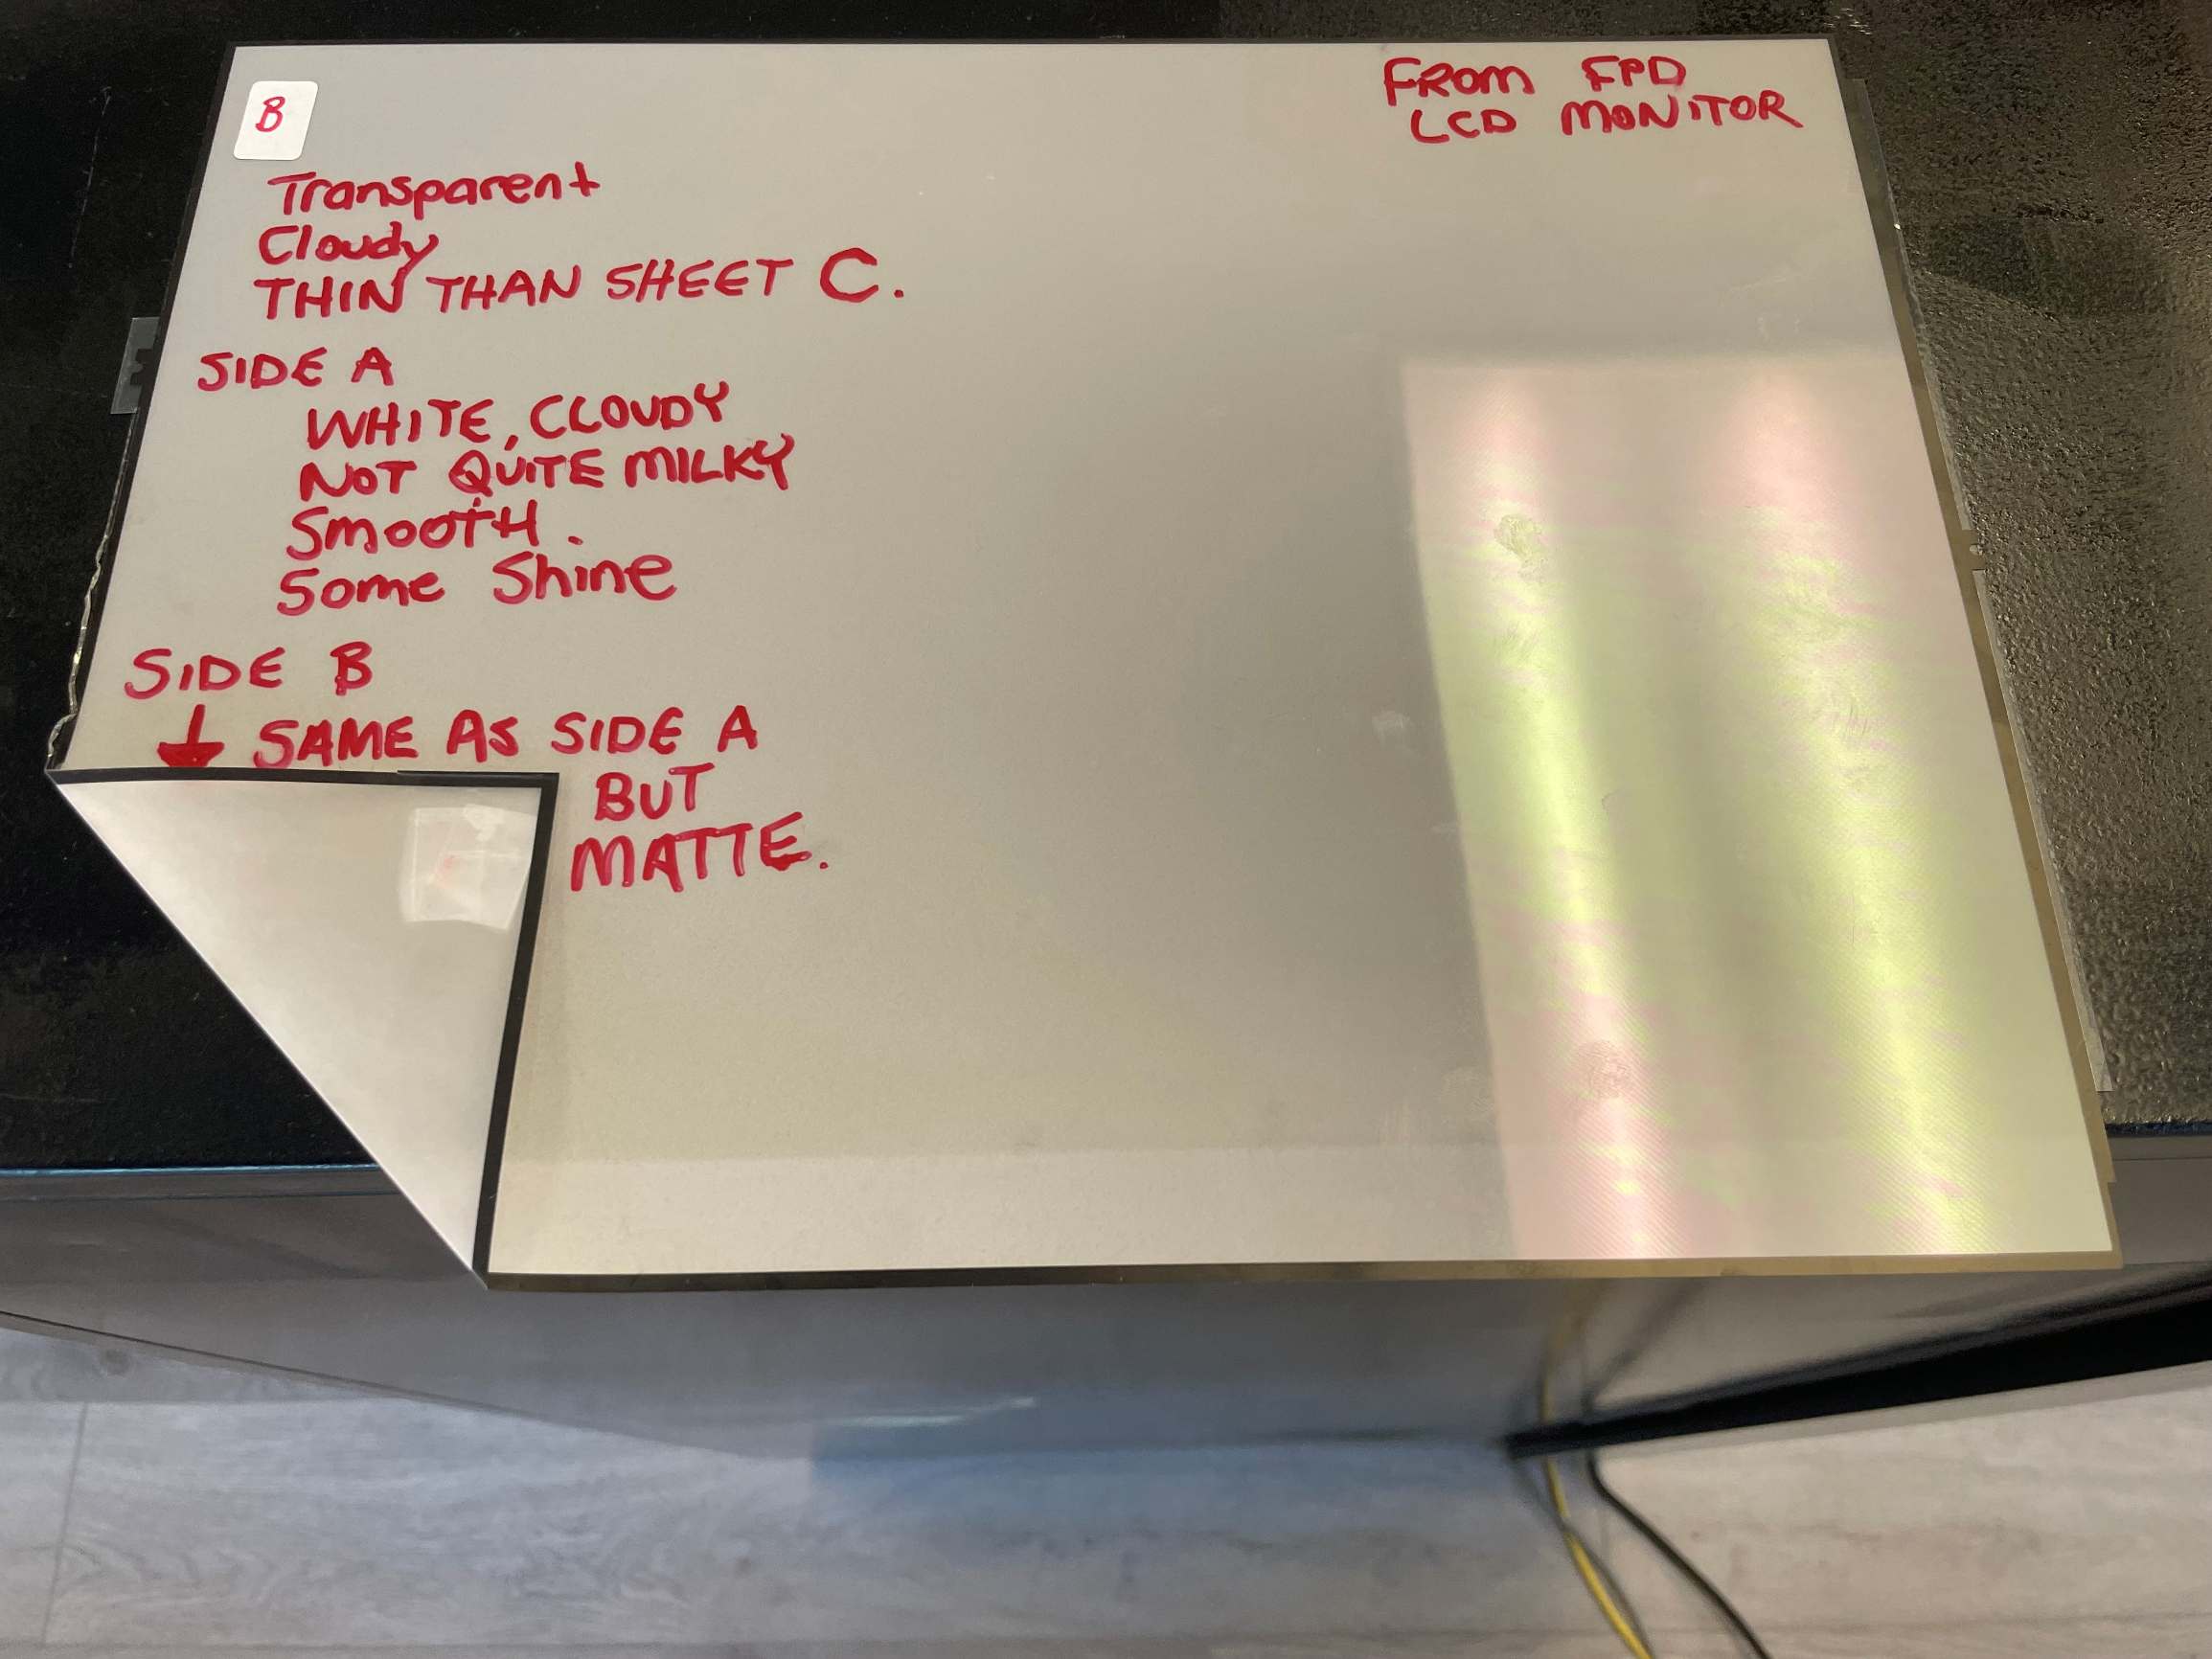 B
FROM FPD
LCD MONITOR
Transparent
Cloudy
THIN THAN SHEET C.
SIDE A
WHITE, CLOUDY
NOT QUITE MILKY
SMOOTH.
Some Shine
SIDE B
SAME AS SIDE A
BUT
MATTE.